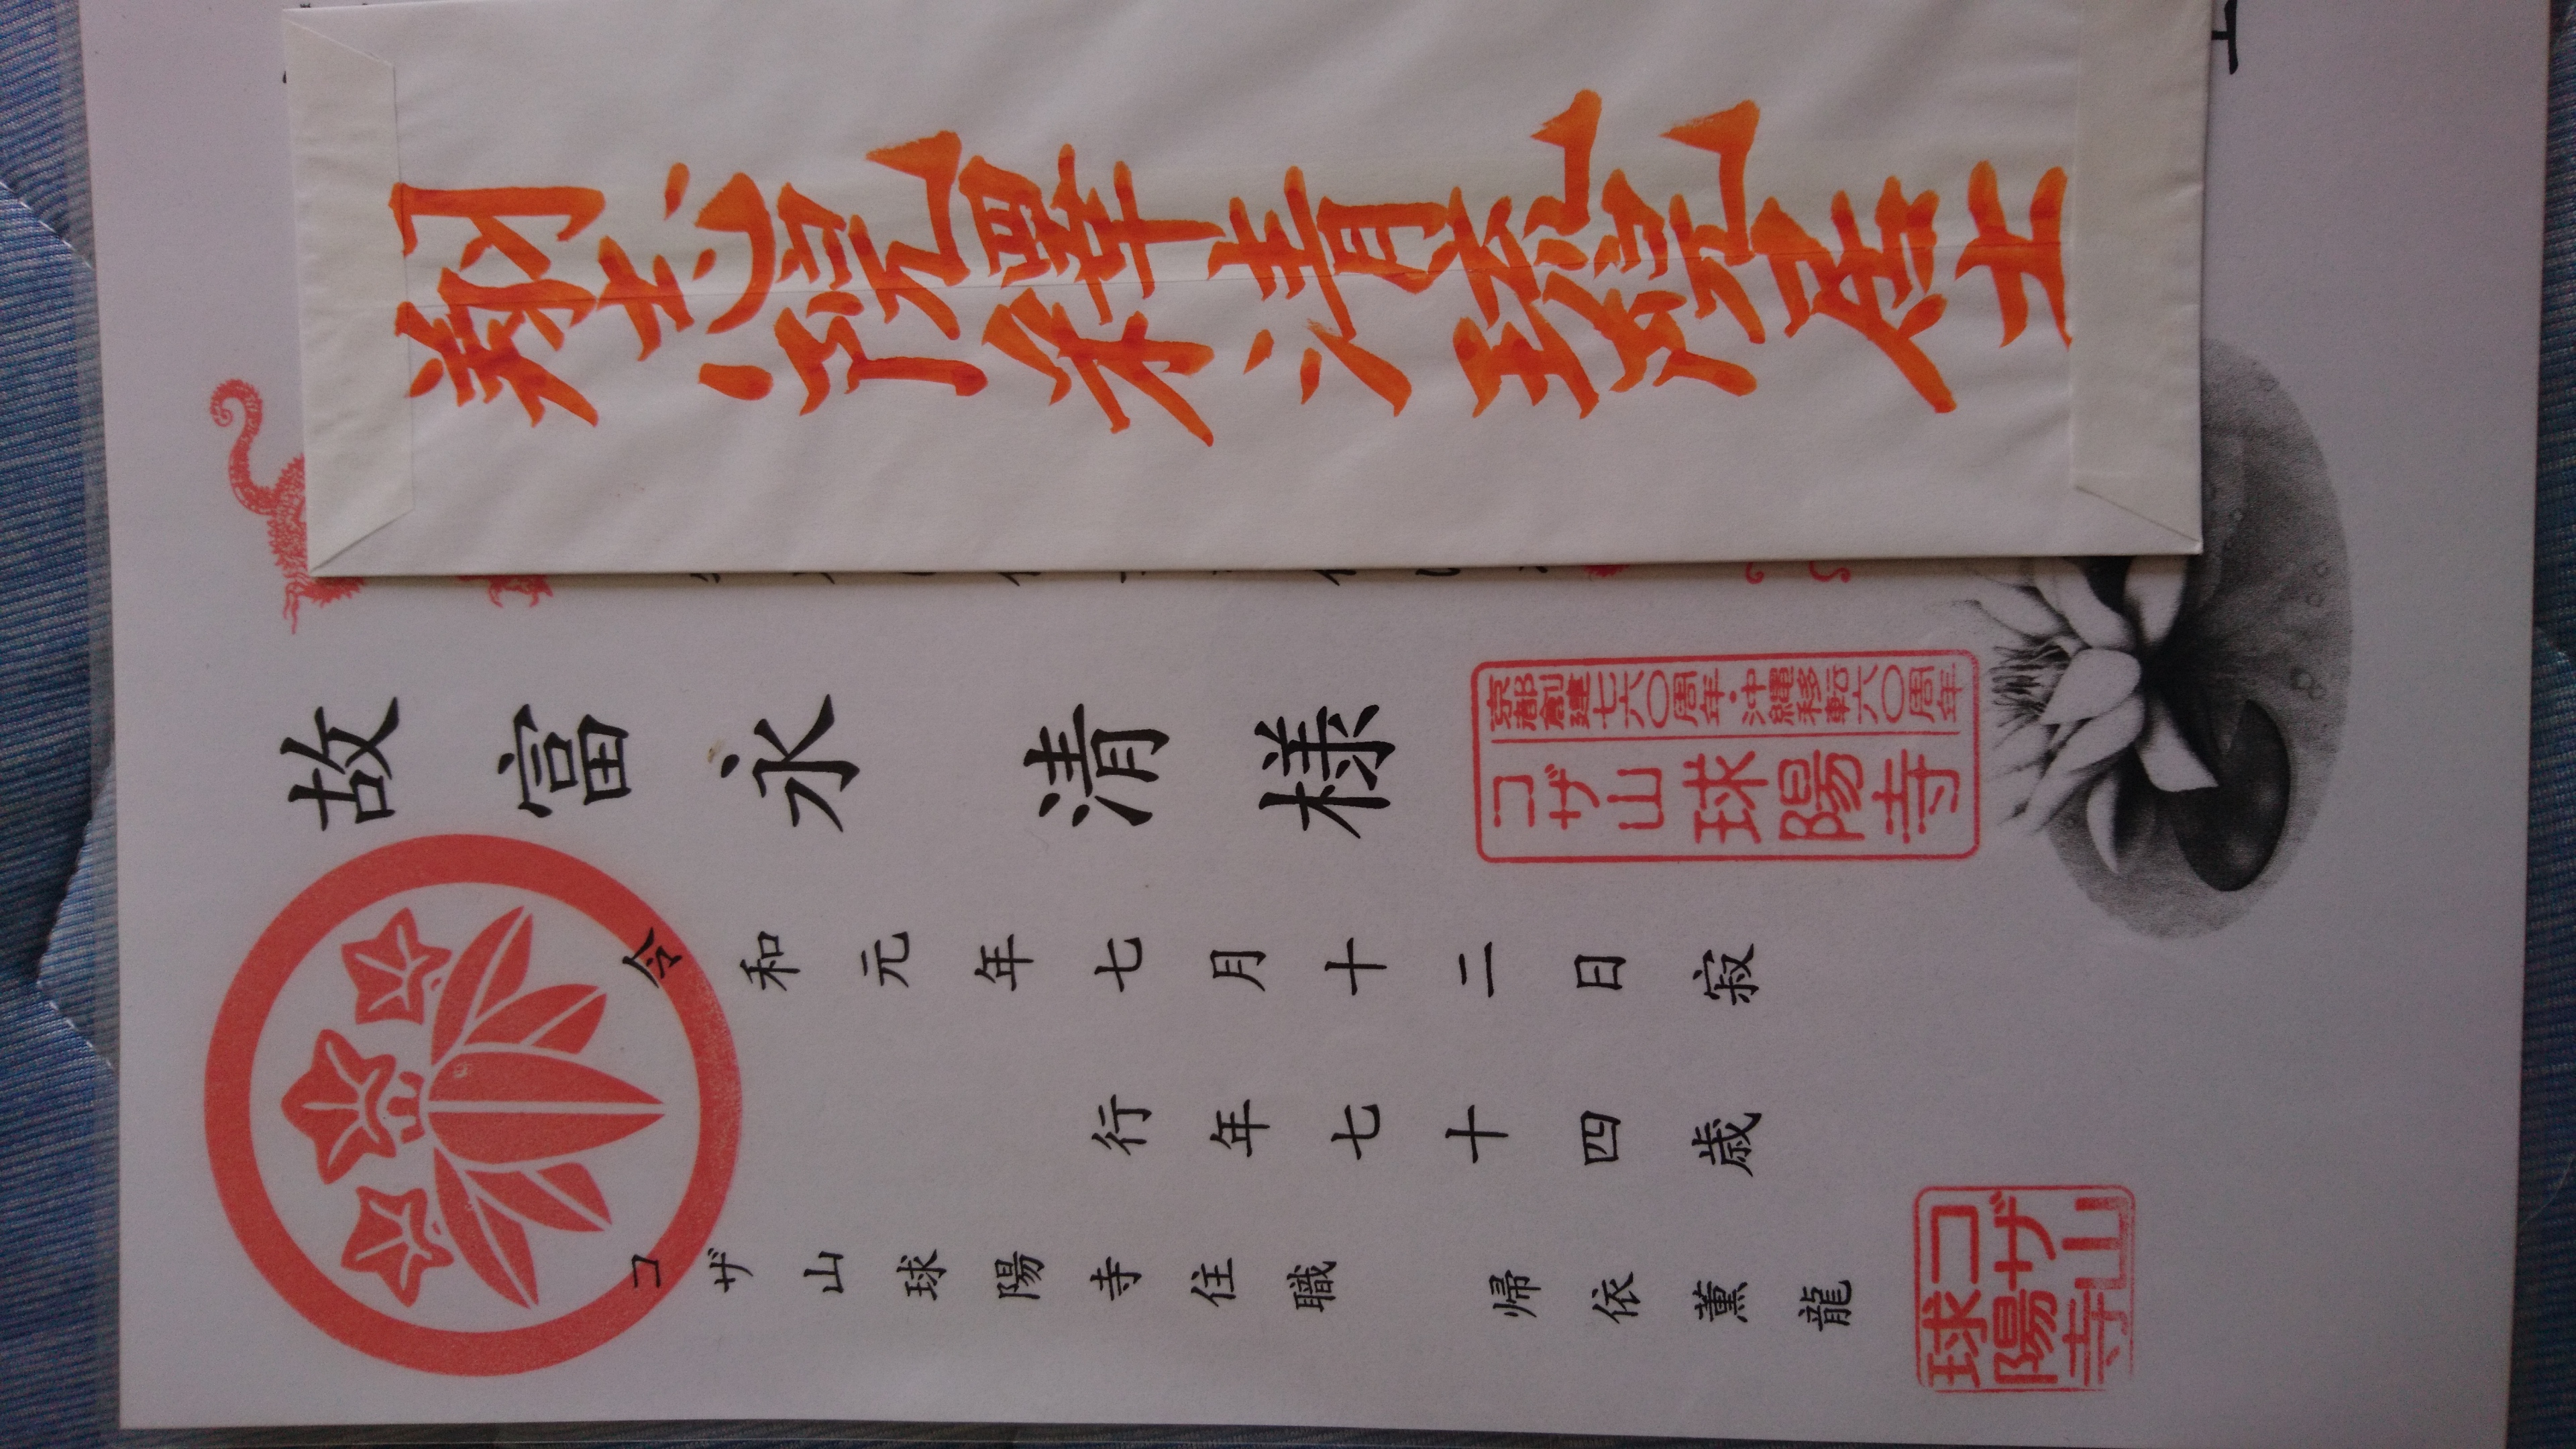 釋清琉
居士
故富永清様
京都創建七六〇周年・沖縄移転六〇周年
コザ山球陽寺
令和元年七月十二日寂
行年七十四歳
コザ山球陽寺住職 帰依薫龍
コザ山
球陽寺